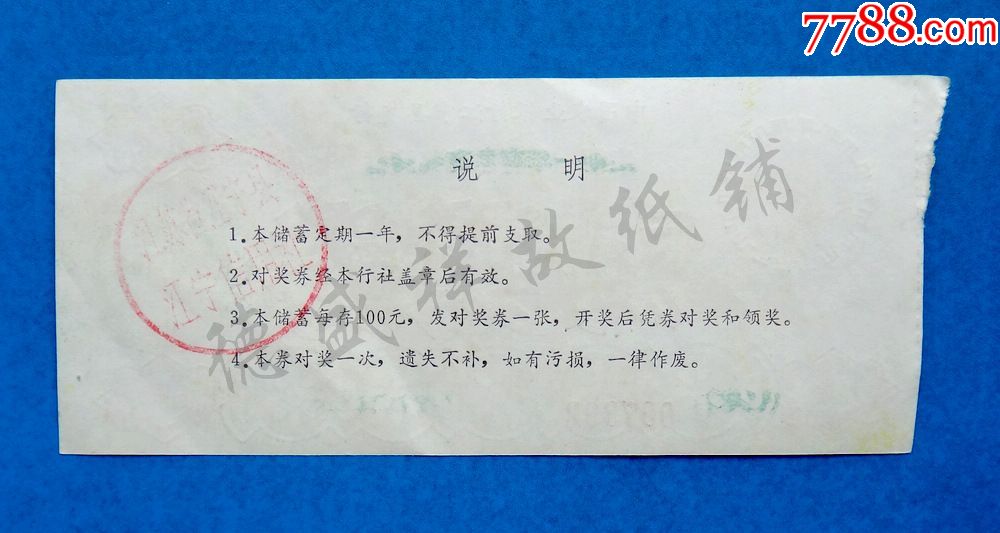 7788.com
说 明
1.本储蓄定期一年，不得提前支取。
2.对奖券经本行社盖章后有效。
3.本储蓄每存100元，发对奖券一张，开奖后凭券对奖和领奖。
4.本券对奖一次，遗失不补，如有污损，一律作废。
江宁信用社
德盛祥故纸铺